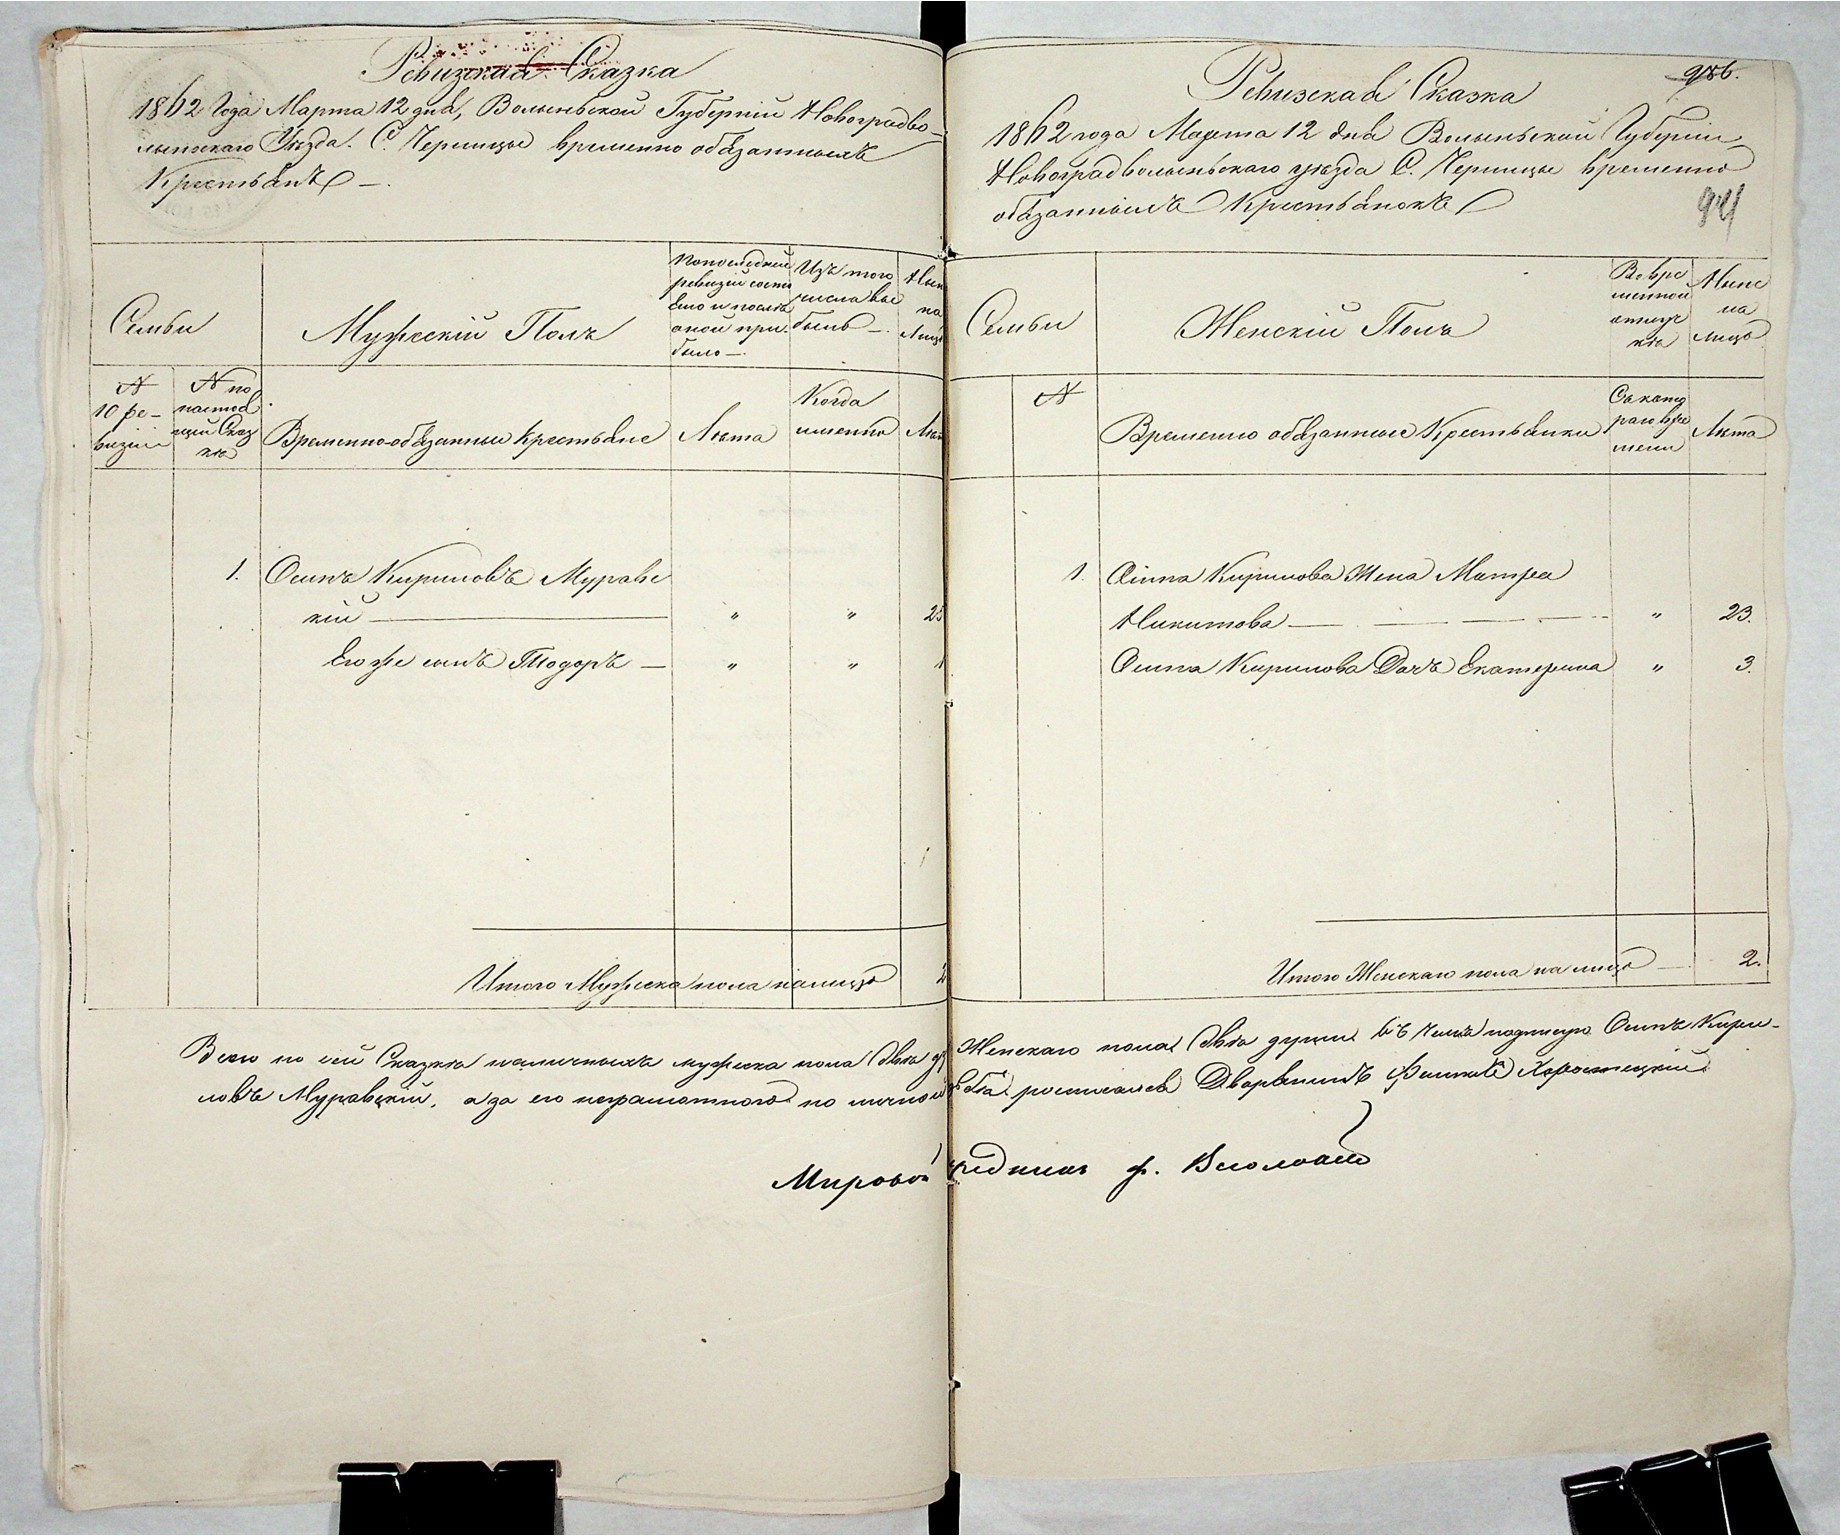 Ревизская Сказка
1862 Года Марта 12 дня, Волыньской Губерніи Новоградво-
лынскаго Уѣзда. С. Черницы временно обязанныхъ
Крестьянъ —.
Семьи
Мужескій Полъ
Попоследней
ревизіи состо
яло и послѣ
оной при
было —.
Изъ того
числа вы
было —.
Нын
на
Лицо
N
10 ре-
визіи
N по
настоя
щей Сказ
кѣ
Временно-обязанные крестьяне
Лѣта
Когда
именно
Лѣт
1. Осипъ Кириловъ Муравс
кій — " " 25
Его же сынъ Тодоръ — " " 1
Итого Мужеска пола налицо 2
986.
Ревизская Сказка
1862 года Марта 12 дня Волыньской Губерніи,
Новоградволыньскаго уѣзда С. Черницы временно
обязанныхъ Крестьянокъ
94
Семьи
Женскій Полъ
Во вре
менной
отлуч
кѣ
Ныне
на
лицо
N
Временно обязанные Крестьянки
Съ кото
раго вре
мени
Лѣта
1. Осипа Кирилова Жена Матреа
Никитова — " 23.
Осипа Кирилова Дочь Екатерина " 3.
Итого Женскаго пола на лицо — 2.
Всего по сей Сказкѣ наличныхъ мужеска пола двѣ д Женскаго пола двѣ души въ чемъ подписую Осипъ Кири-
ловъ Муравскій, а за его неграмотного по личной прозбѣ росписался Дворянинъ Хоростецкій
Мировой Посредникъ ф.